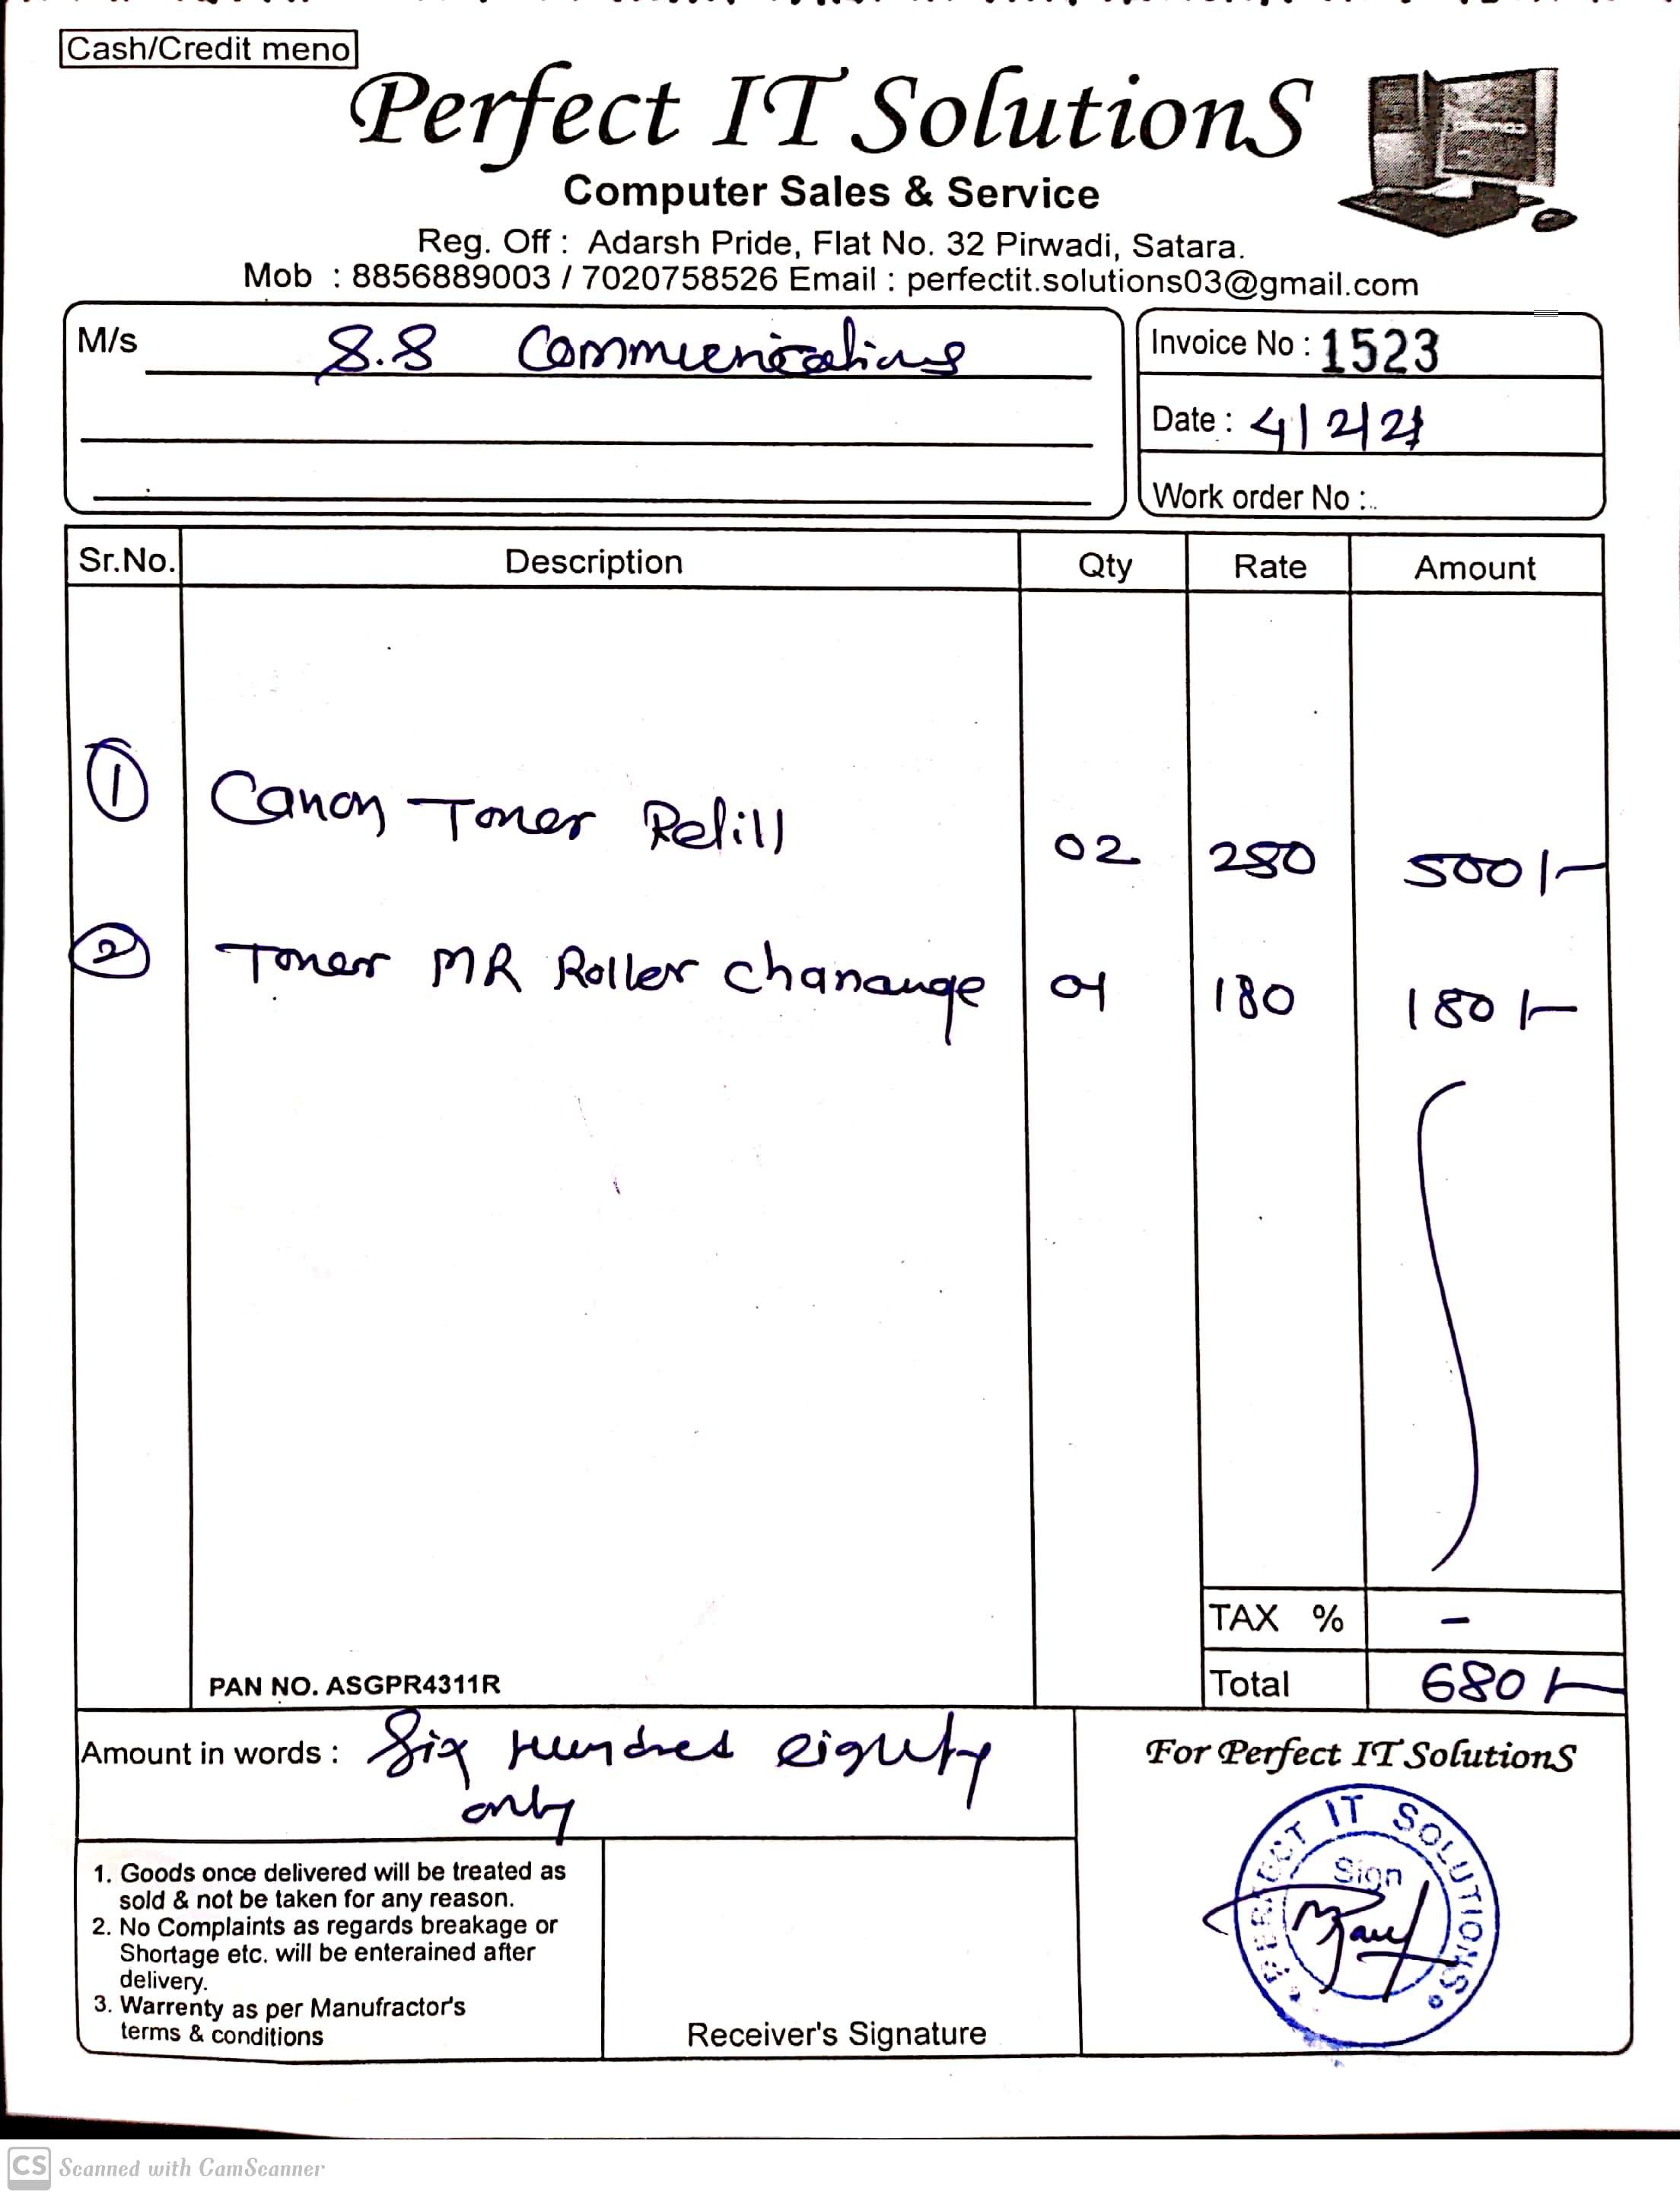 Cash/Credit meno
Perfect IT SolutionS
Computer Sales & Service
Reg. Off : Adarsh Pride, Flat No. 32 Pirwadi, Satara.
Mob : 8856889003 / 7020758526 Email : perfectit.solutions03@gmail.com
M/s S.S Communications
Invoice No : 1523
Date : 4/2/21
Work order No :
Sr.No. Description Qty Rate Amount
1 Canon Toner Refill 02 250 500/-
2 Toner MR Roller Chanange 01 180 180/-
TAX % -
PAN NO. ASGPR4311R
Total 680/-
Amount in words : Six Hundred eighty
only
For Perfect IT SolutionS
PERFECT IT SOLUTIONS
Sign
1. Goods once delivered will be treated as
sold & not be taken for any reason.
2. No Complaints as regards breakage or
Shortage etc. will be enterained after
delivery.
3. Warrenty as per Manufractor's
terms & conditions
Receiver's Signature
CS Scanned with CamScanner